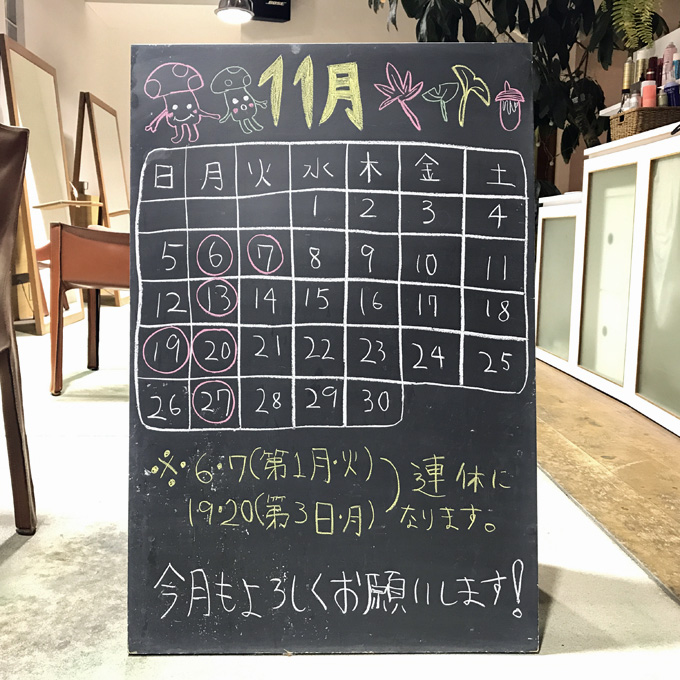 BOSE
11月
日 月 火 水 木 金 土
1 2 3 4
5 6 7 8 9 10 11
12 13 14 15 16 17 18
19 20 21 22 23 24 25
26 27 28 29 30
※ 6・7(第1月・火)
19・20(第3日・月)
連休に
なります。
今月もよろしくお願いします!